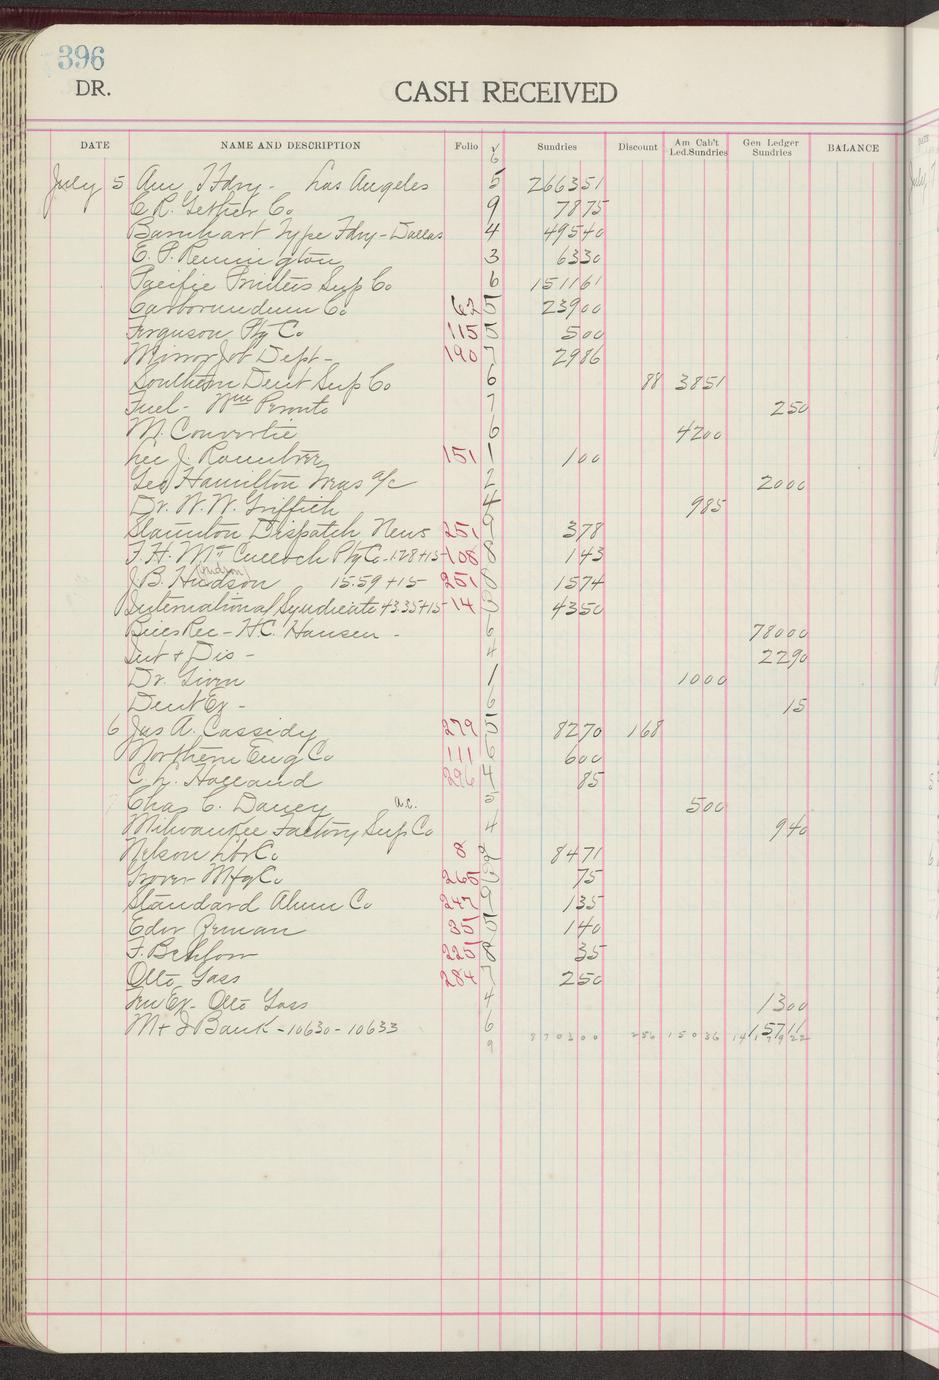 396
DR.
CASH RECEIVED
DATE NAME AND DESCRIPTION Folio √ Sundries Discount Am Cab't Led.Sundries Gen Ledger Sundries BALANCE
6
July 5 Am T Fdry - Los Angeles 5 266351
C. R. Gether Co 9 7875
Barnhart Type Fdry - Dallas 4 49540
E. P. Remington 3 6330
Pacific Printers Sup Co 6 151161
Carborundum Co 62 5 23900
Ferguson Ptg Co 115 5 500
Mirror Job Dept - 190 7 2986
Southern Dent Sup Co 6 88 3851
Fuel - Wm Peronto 7 250
M. Convertie 6 4200
Lee J. Rountree 151 1 100
Geo Hamilton Treas a/c 2 2000
Dr. W. W. Griffith 4 985
Staunton Dispatch News 251 9 378
F. H. McCulloch Ptg Co - 1.28+15 - 108 8 143
J. B. Hudson (Hudson) 15.59+15 251 8 1574
International Syndicate 43.35+15 - 14 4350
Bills Rec - H.C. Hansen - 6 78000
Int + Dis - 4 2290
Dr. Givin 1 1000
Dent Ex - 6 15
6 Jas A. Cassidy 279 5 8270 168
Northern Eng Co 111 6 600
C. L. Holland 296 4 85
Chas C. Dancy a.c. 5 500
Milwaukee Factory Sup Co 4 940
Nelson Lbr Co 8 8471
Grover Mfg Co 265 75
Standard Alum Co 247 9 135
Edor Zeman 35 5 140
F. Behlow 225 8 35
Otto Gass 284 7 250
Fur Ex - Otto Gass 4 1300
M + I Bank - 10630 - 10633 6 15711
9 870300 256 15036